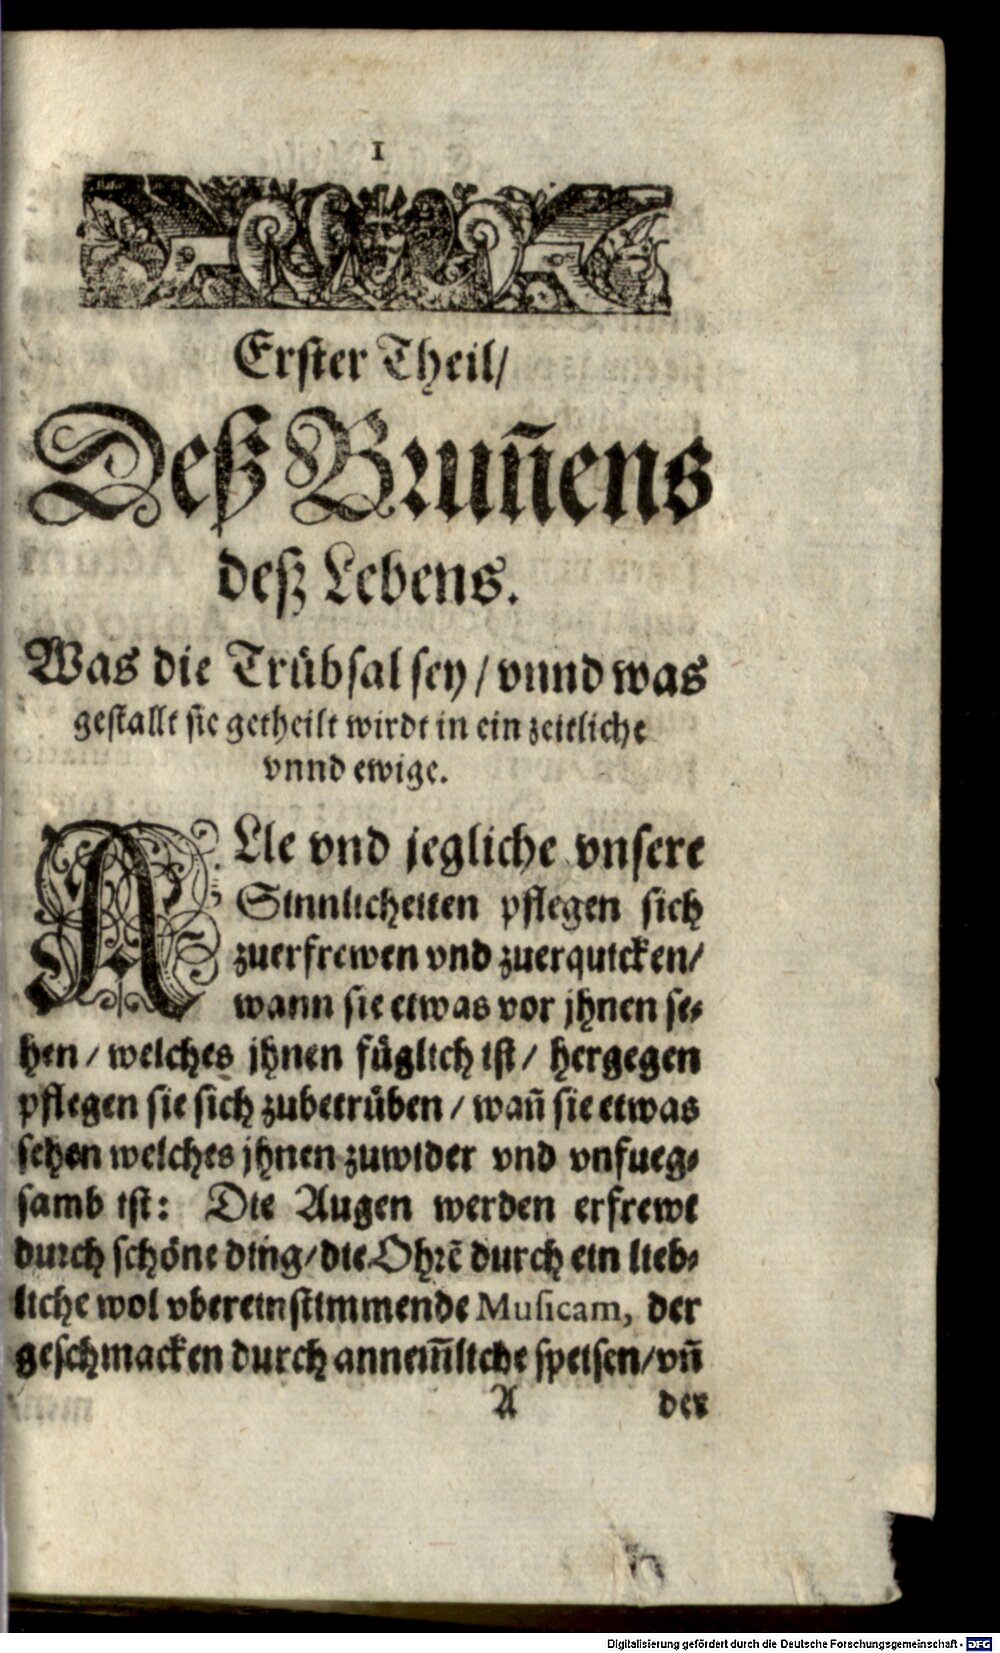 1
Erster Theil/
Deß Bruñens
deß Lebens.
Was die Trübsal sey / vnnd was
gestallt sie getheilt wirdt in ein zeitliche
vnnd ewige.
ALle vnd jegliche vnsere
Sinnlicheiten pflegen sich
zuerfrewen vnd zuerquicken/
wann sie etwas vor jhnen se-
hen / welches jhnen füglich ist / hergegen
pflegen sie sich zubetrüben / wañ sie etwas
sehen welches jhnen zuwider vnd vnfueg-
samb ist: Die Augen werden erfrewt
durch schöne ding/die Ohrẽ durch ein lieb-
liche wol vbereinstimmende Musicam, der
geschmacken durch annem̃liche speisen/vñ
A der
Digitalisierung gefördert durch die Deutsche Forschungsgemeinschaft - DFG